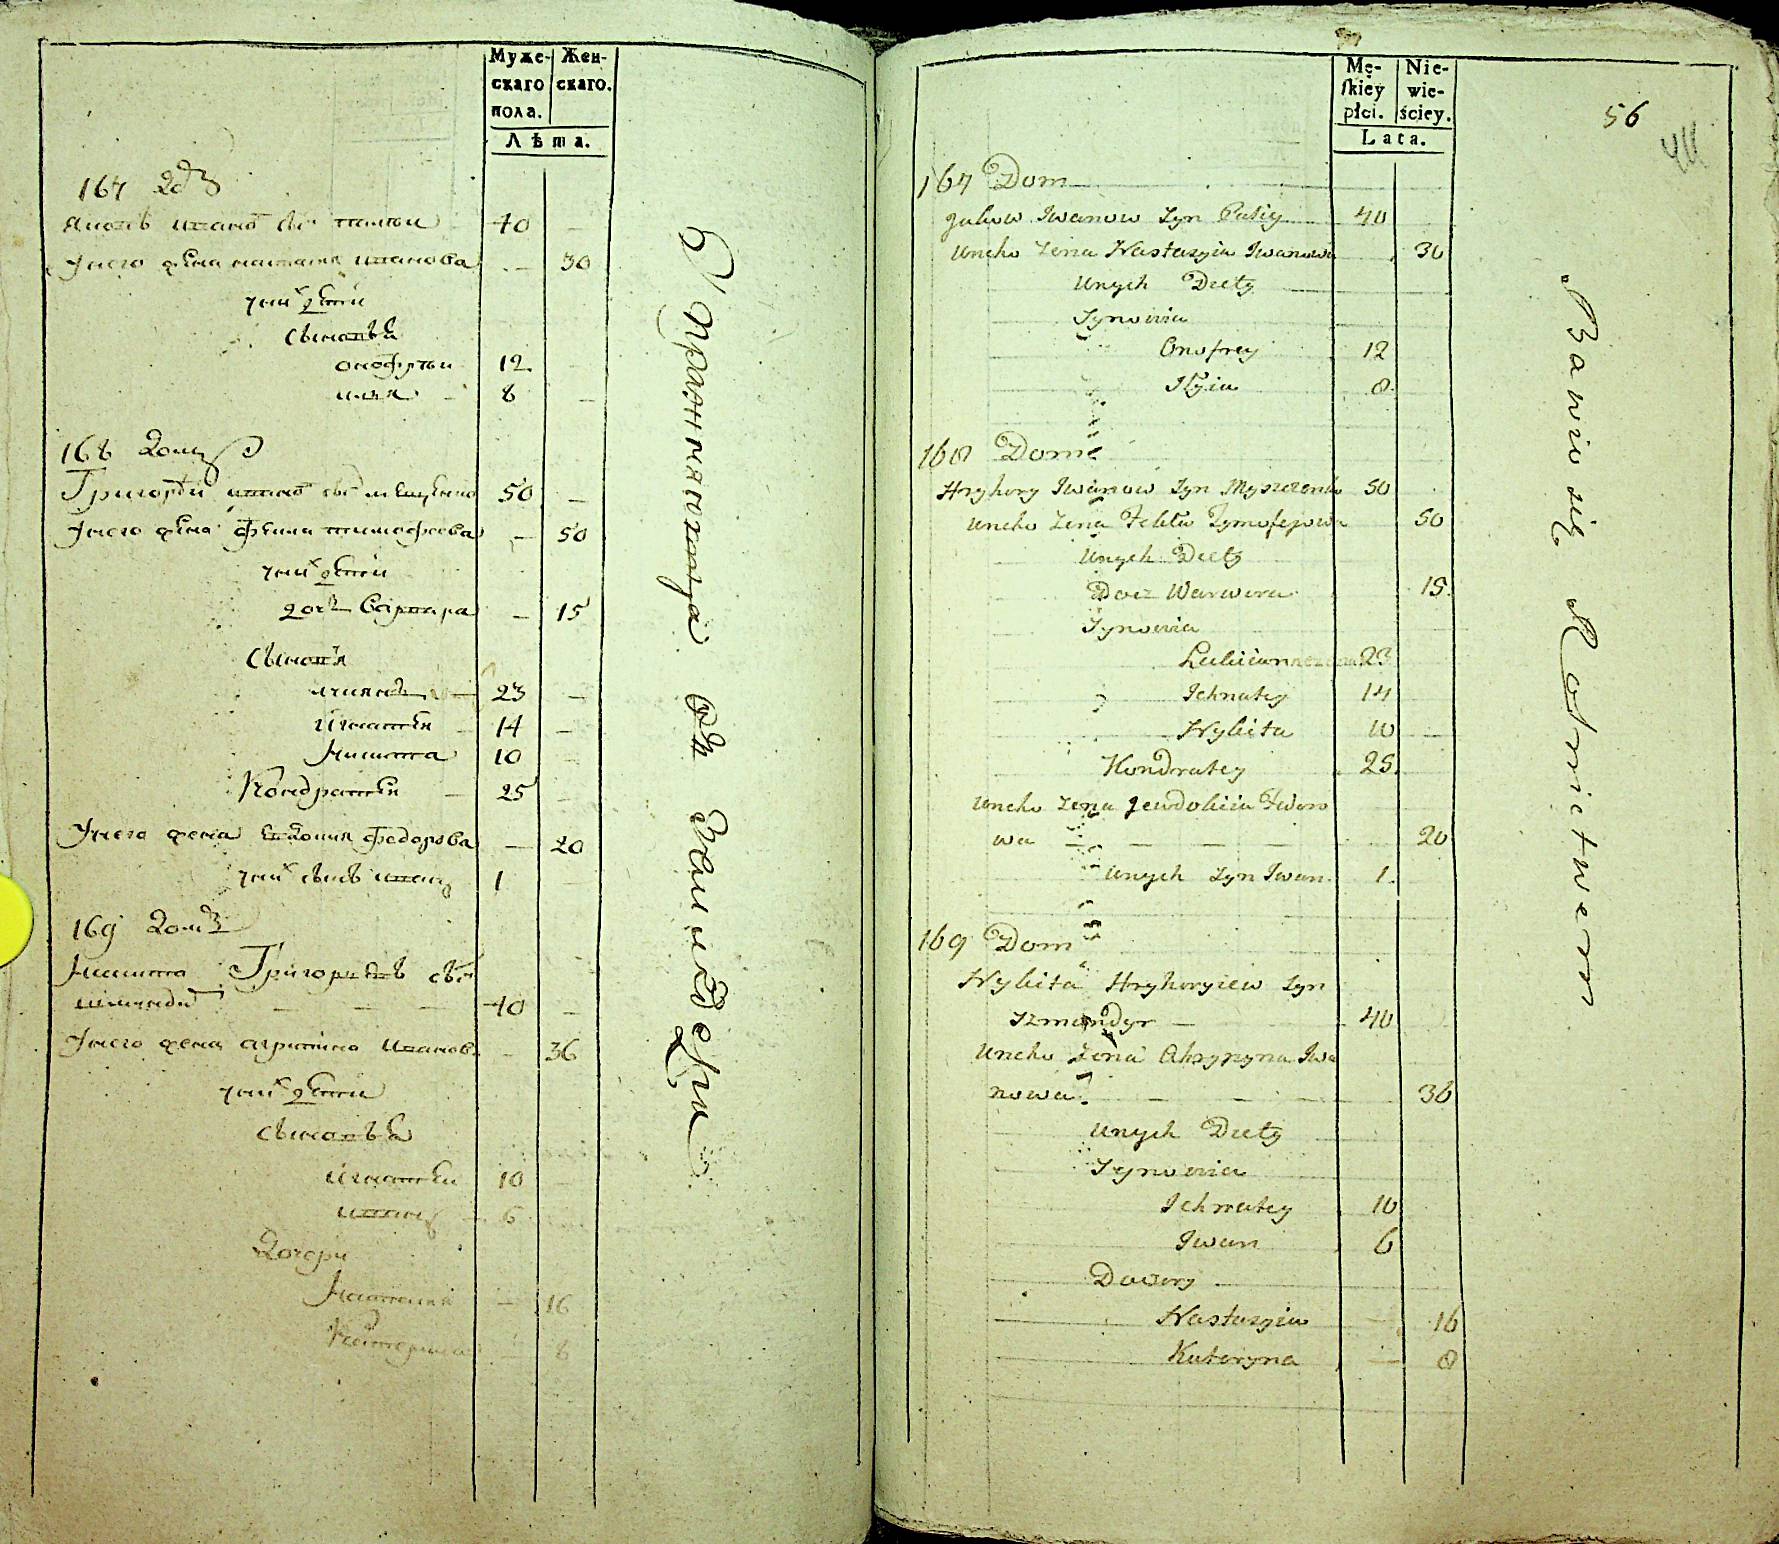 Муже-
скаго
пола.
Жен-
скаго.
Лѣта.
167 Домъ
Яковъ Ивановъ сынъ
40 —
Унего жена Настасия Иванова — 30
унихъ дѣти
Сыновья
Онофрѣи 12
Илия 8 —
168 Домъ
Григорѣй Ивановъ сынъ 50 —
Унего жена Фекла Тимофеева — 50
унихъ дѣти
дочь Варвара — 15
Сыновья
23 —
Игнатѣи 14 —
Никита 10
Кондратѣи — 25
Унего жена Евдокия Федорова — 20
унихъ сынъ Иванъ 1
169 Домъ
Никита Григорьевъ сынъ
40 —
Унего жена Агрипина Иванов. — 36
унихъ дѣти
Сыновья
Игнатѣи 10
Иванъ 6
Дочери
Настасия — 16
Катерина 8
Упражняются въ Земледелии
Mę-
skiey
płci.
Nie-
wie-
ściey.
Lata.
56
167 Dom
Jakow Iwanow Syn Paliy 40
Uneho Żena Nastasyia Iwanowa 30
Unych Diety
Synowia
Onofrey 12
Ilyia 8.
168 Dom
Hryhory Iwanow Syn 50
Uneho Żena Fekła Tymofejowa 50
Unych Diety
Docz Warwara 15.
Synowia
23
Ichnatey 14
Nykita 10
Kondratey 25.
Uneho Żena Jewdokiia Fedoro
wa — — — — 20
Unych Syn Iwan 1.
169 Dom
Nykita Hryhoryiew Syn
Szmandyr — 40
Uneho Żena Ahrypyna Iwa
nowa. — — — 36
Unych Diety
Synowia
Ichnatey 10
Iwan 6
Doczery
Nastasyia — 16
Kateryna — 8
Bawio się Rolnictwem